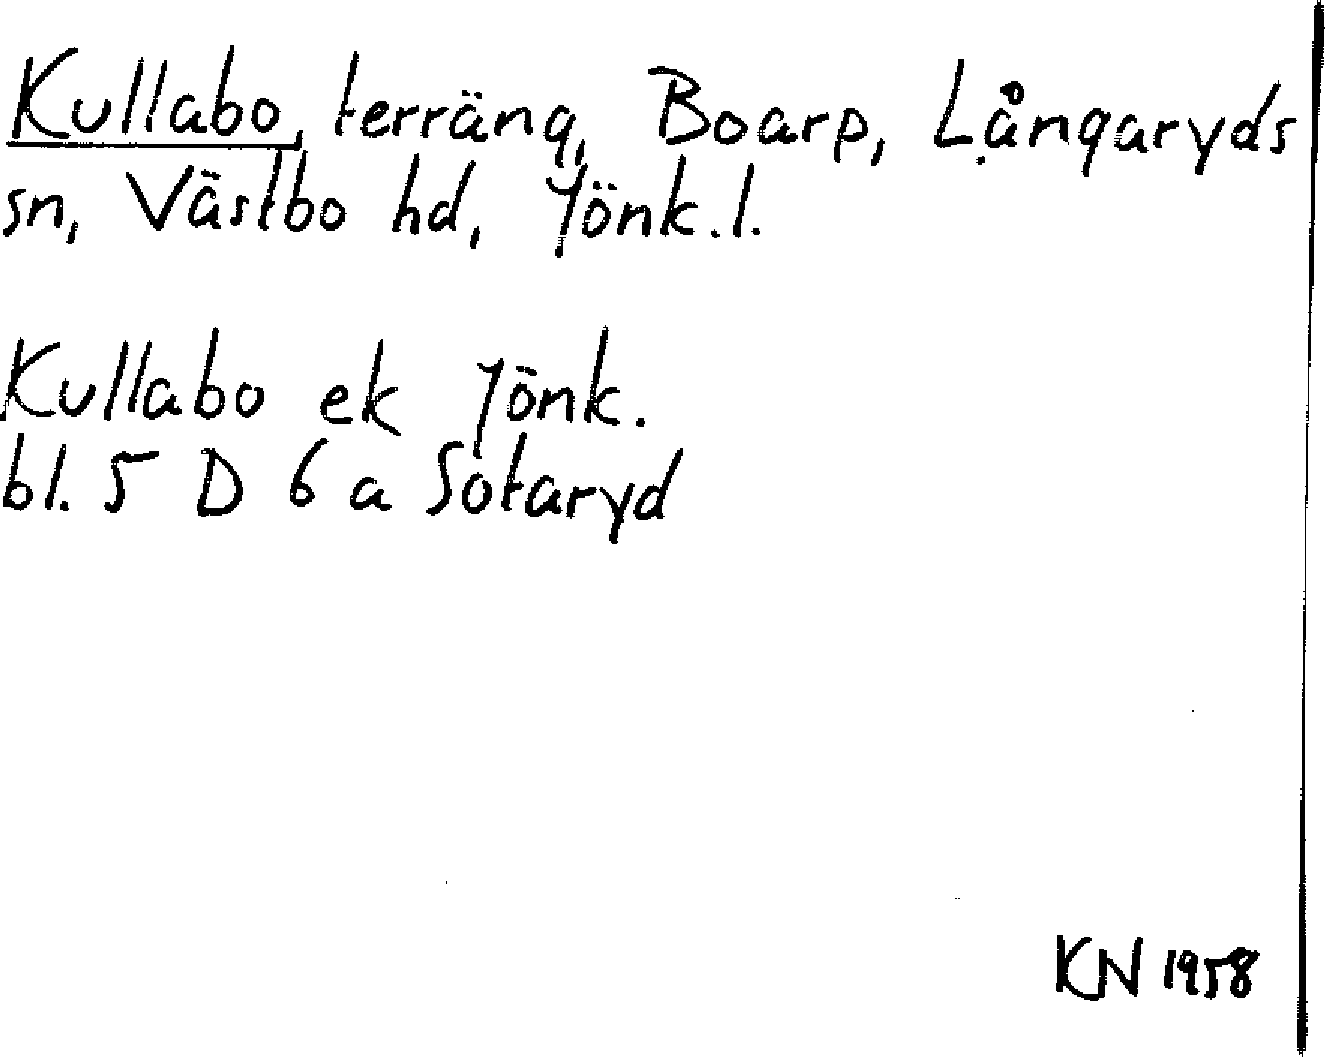 Kullabo, terräng, Boarp, Långaryds
sn, Västbo hd, Jönk.l.
Kullabo ek Jönk.
bl. 5 D 6 a Sotaryd
KN 1958